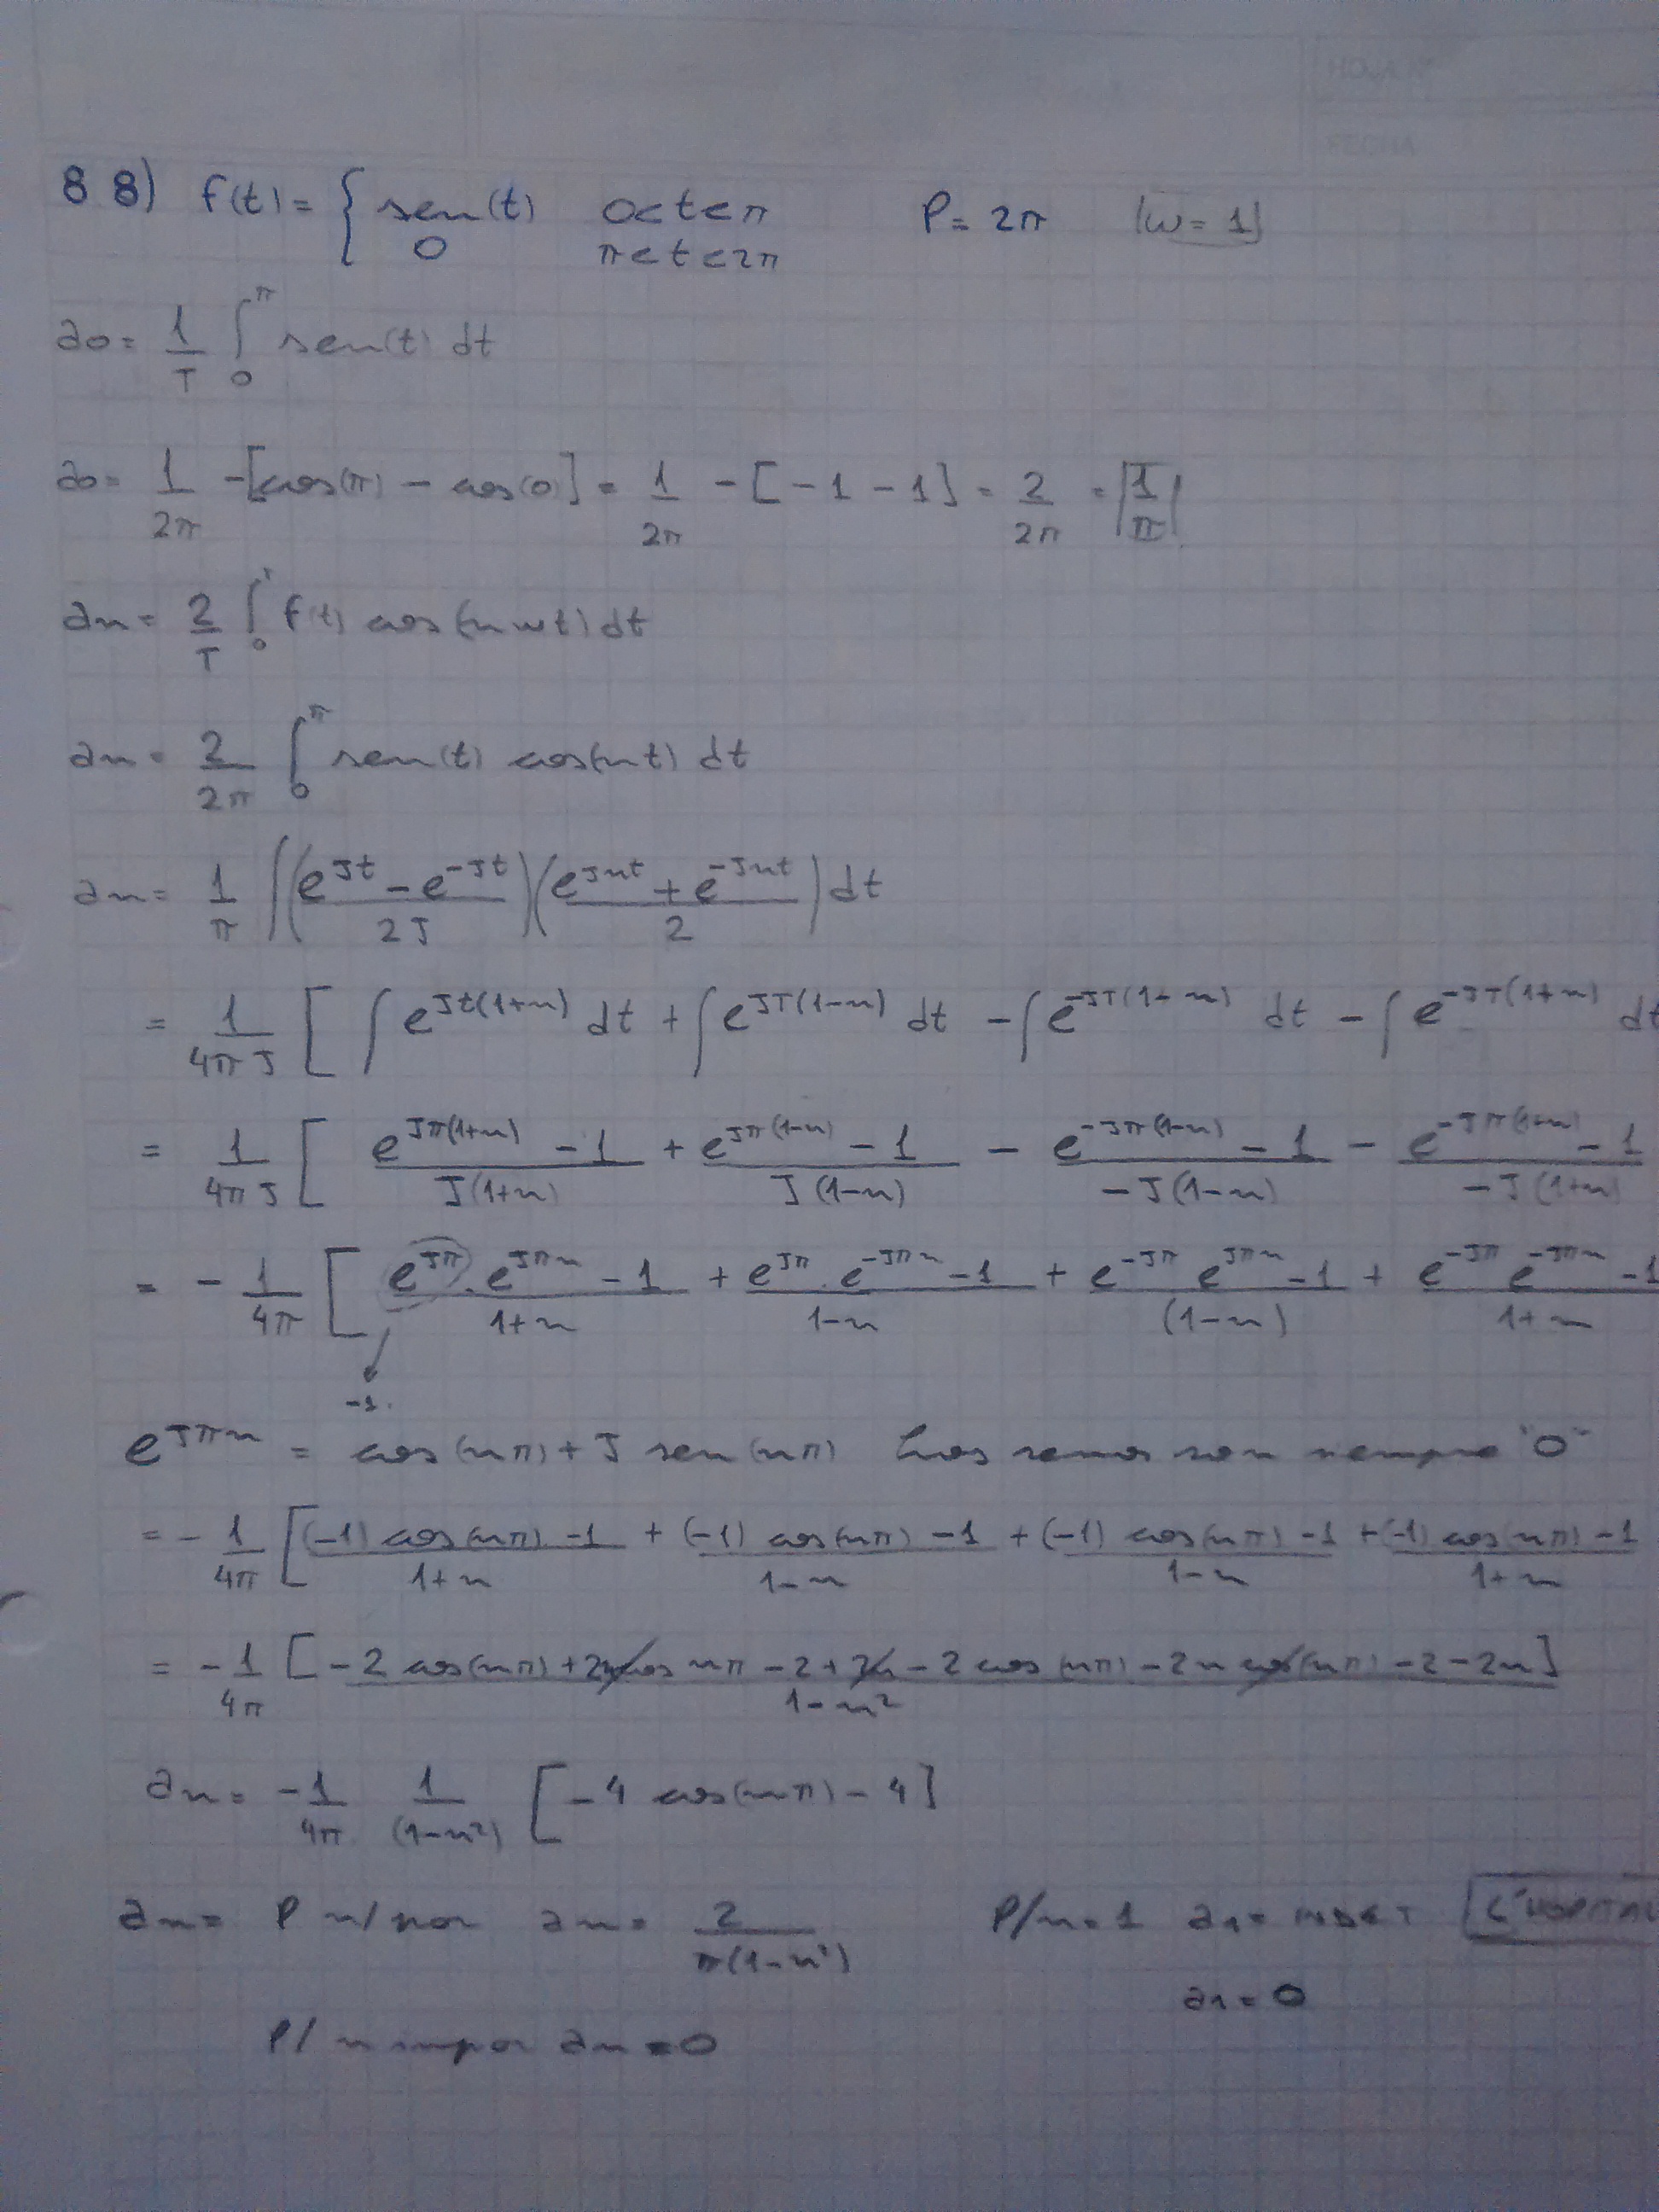 HOJA Nº
FECHA
8 8) f(t) = { sen(t)   0<t<π     P = 2π   |ω = 1|
0   π<t<2π
a0 = 1/T ∫_0^π sen(t) dt
a0 = 1/2π -[cos(π) - cos(0)] = 1/2π -[-1 -1] = 2/2π = |1/π|
an = 2/T ∫_0^T f(t) cos(nωt) dt
an = 2/2π ∫_0^π sen(t) cos(nt) dt
an = 1/π ∫ ((e^{Jt} - e^{-Jt})/2J) ((e^{Jnt} + e^{-Jnt})/2) dt
= 1/4πJ [ ∫ e^{Jt(1+n)} dt + ∫ e^{JT(1-n)} dt - ∫ e^{-JT(1+n)} dt - ∫ e^{-JT(1+n)} dt
= 1/4πJ [ (e^{Jπ(1+n)} - 1)/J(1+n) + (e^{Jπ(1-n)} - 1)/J(1-n) - (e^{-Jπ(1-n)} - 1)/-J(1-n) - (e^{-Jπ(1+n)} - 1)/-J(1+n)
= - 1/4π [ (e^{Jπ} . e^{Jπn} - 1)/1+n + (e^{Jπ} . e^{-Jπn} - 1)/1-n + (e^{-Jπ} e^{Jπn} - 1)/(1-n) + (e^{-Jπ} e^{-Jπn} - 1)/1+n
-1.
e^{Jπn} = cos(nπ) + J sen(nπ)   Los senos son siempre "0"
= - 1/4π [ ((-1) cos(nπ) - 1)/1+n + ((-1) cos(nπ) - 1)/1-n + ((-1) cos(nπ) - 1)/1-n + ((-1) cos(nπ) - 1)/1+n
= - 1/4π [ (-2 cos(nπ) + 2n cos nπ - 2 + 2n - 2 cos(nπ) - 2n cos(nπ) - 2 - 2n)/1-n² ]
an = -1/4π 1/(1-n²) [ -4 cos(nπ) - 4 ]
an = P n/par   an = 2/π(1-n²)     P/n=1   a1 = INDET   L'HOPITAL
a1 = 0
P/ n impar an = 0